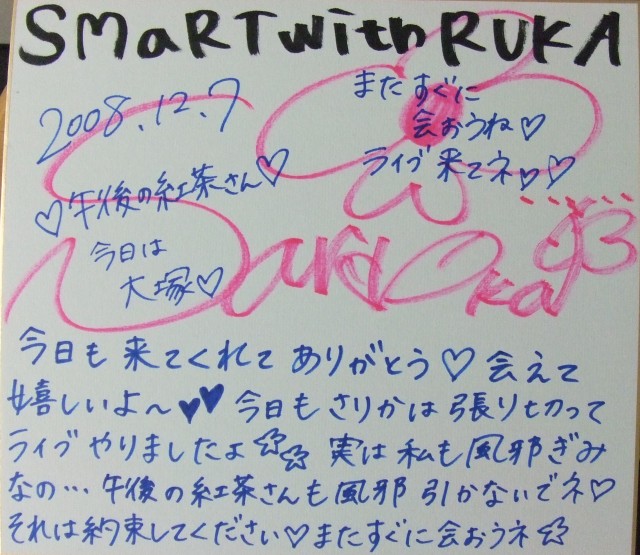 SMaRT with RUKA
2008.12.7
またすぐに
会おうね♡
ライブ来てネ♡♡
♡午後の紅茶さん♡
今日は
大塚♡
今日も来てくれてありがとう♡会えて
嬉しいよ〜♥♥今日もさりかは張り切って
ライブやりましたよ☆☆実は私も風邪ぎみ
なの…午後の紅茶さんも風邪引かないでネ♡
それは約束してください♡またすぐに会おうネ☆